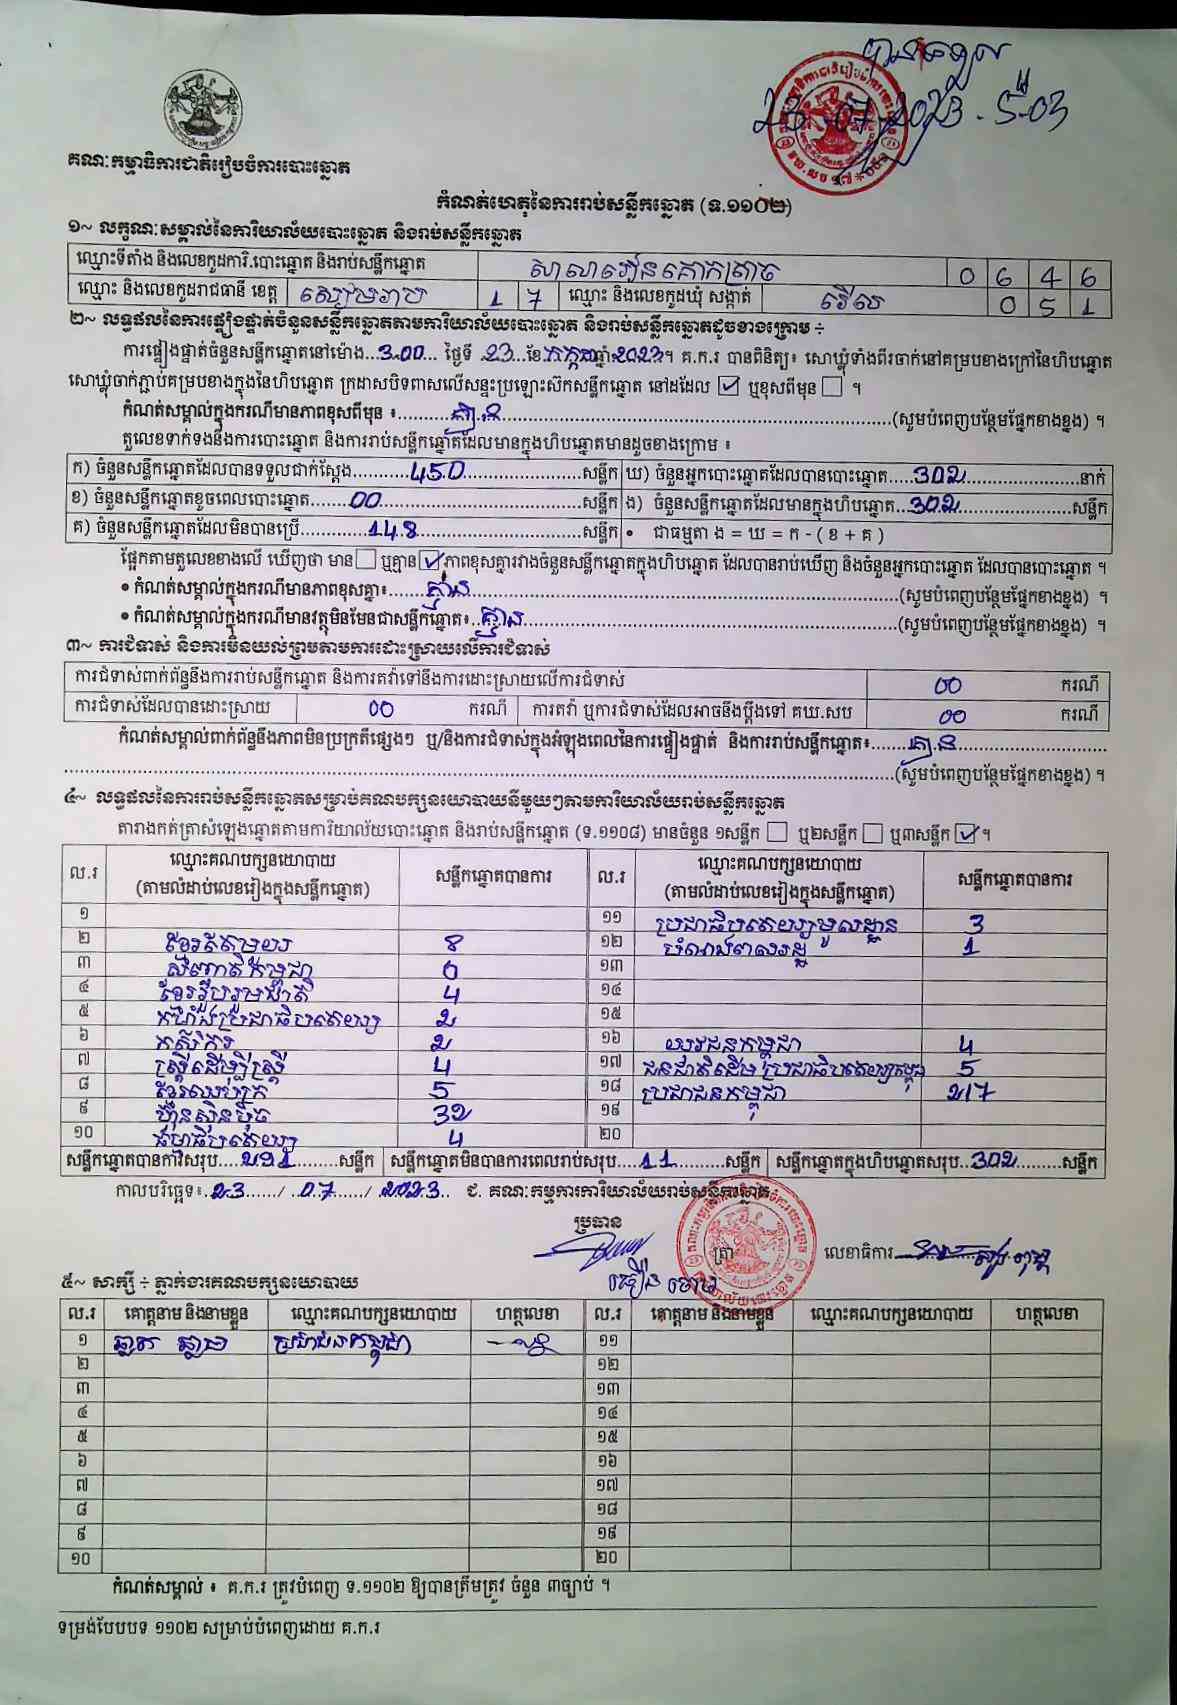 បានទទួល
23-07-2023 - 5:03
គណៈកម្មាធិការជាតិរៀបចំការបោះឆ្នោត
កំណត់ហេតុនៃការរាប់សន្លឹកឆ្នោត (ទ.១១០២)
១~ លក្ខណៈសម្គាល់នៃការិយាល័យបោះឆ្នោត និងរាប់សន្លឹកឆ្នោត
ឈ្មោះទីតាំង និងលេខកូដការិ.បោះឆ្នោត និងរាប់សន្លឹកឆ្នោត សាលារៀនគោកត្រាច 0 6 4 6
ឈ្មោះ និងលេខកូដរាជធានី ខេត្ត សៀមរាប 1 7 ឈ្មោះ និងលេខកូដឃុំ សង្កាត់ 0 5 1
២~ លទ្ធផលនៃការផ្ទៀងផ្ទាត់ចំនួនសន្លឹកឆ្នោតតាមការិយាល័យបោះឆ្នោត និងរាប់សន្លឹកឆ្នោតដូចខាងក្រោម ÷
ការផ្ទៀងផ្ទាត់ចំនួនសន្លឹកឆ្នោតនៅម៉ោង...3.00... ថ្ងៃទី 23 ខែ កក្កដា ឆ្នាំ 2023។ គ.ក.រ បានពិនិត្យ៖ សោឃ្លុំទាំងពីរចាក់នៅគម្របខាងក្រៅនៃហិបឆ្នោត
សោឃ្លុំចាក់ភ្ជាប់គម្របខាងក្នុងនៃហិបឆ្នោត ក្រដាសបិទពាសលើសន្ទះប្រឡោះស៊កសន្លឹកឆ្នោត នៅដដែល ☑ ឬខុសពីមុន ☐ ។
កំណត់សម្គាល់ក្នុងករណីមានភាពខុសពីមុន ៖ គ្មាន (សូមបំពេញបន្ថែមផ្នែកខាងខ្នង) ។
តួលេខទាក់ទងនឹងការបោះឆ្នោត និងការរាប់សន្លឹកឆ្នោតដែលមានក្នុងហិបឆ្នោតមានដូចខាងក្រោម ៖
ក) ចំនួនសន្លឹកឆ្នោតដែលបានទទួលជាក់ស្តែង 450 សន្លឹក ឃ) ចំនួនអ្នកបោះឆ្នោតដែលបានបោះឆ្នោត 302 នាក់
ខ) ចំនួនសន្លឹកឆ្នោតខូចពេលបោះឆ្នោត 00 សន្លឹក ង) ចំនួនសន្លឹកឆ្នោតដែលមានក្នុងហិបឆ្នោត 302 សន្លឹក
គ) ចំនួនសន្លឹកឆ្នោតដែលមិនបានប្រើ 148 សន្លឹក • ជាធម្មតា ង = ឃ = ក - ( ខ + គ )
ផ្អែកតាមតួលេខខាងលើ ឃើញថា មាន ☐ ឬគ្មាន ☑ ភាពខុសគ្នារវាងចំនួនសន្លឹកឆ្នោតក្នុងហិបឆ្នោត ដែលបានរាប់ឃើញ និងចំនួនអ្នកបោះឆ្នោត ដែលបានបោះឆ្នោត ។
• កំណត់សម្គាល់ក្នុងករណីមានភាពខុសគ្នា៖ គ្មាន (សូមបំពេញបន្ថែមផ្នែកខាងខ្នង) ។
• កំណត់សម្គាល់ក្នុងករណីមានវត្ថុមិនមែនជាសន្លឹកឆ្នោត៖ គ្មាន (សូមបំពេញបន្ថែមផ្នែកខាងខ្នង) ។
៣~ ការជំទាស់ និងការមិនយល់ព្រមតាមការដោះស្រាយលើការជំទាស់
ការជំទាស់ពាក់ព័ន្ធនឹងការរាប់សន្លឹកឆ្នោត និងការតវ៉ាទៅនឹងការដោះស្រាយលើការជំទាស់ 00 ករណី
ការជំទាស់ដែលបានដោះស្រាយ 00 ករណី ការតវ៉ា ឬការជំទាស់ដែលអាចនឹងប្តឹងទៅ គឃ.សប 00 ករណី
កំណត់សម្គាល់ពាក់ព័ន្ធនឹងភាពមិនប្រក្រតីផ្សេងៗ ឬ/និងការជំទាស់ក្នុងអំឡុងពេលនៃការផ្ទៀងផ្ទាត់ និងការរាប់សន្លឹកឆ្នោត៖ គ្មាន
(សូមបំពេញបន្ថែមផ្នែកខាងខ្នង) ។
៤~ លទ្ធផលនៃការរាប់សន្លឹកឆ្នោតសម្រាប់គណបក្សនយោបាយនីមួយៗតាមការិយាល័យរាប់សន្លឹកឆ្នោត
តារាងកត់ត្រាសំឡេងឆ្នោតតាមការិយាល័យបោះឆ្នោត និងរាប់សន្លឹកឆ្នោត (ទ.១១០៨) មានចំនួន ១សន្លឹក ☐ ឬ២សន្លឹក ☐ ឬ៣សន្លឹក ☑ ។
ល.រ ឈ្មោះគណបក្សនយោបាយ (តាមលំដាប់លេខរៀងក្នុងសន្លឹកឆ្នោត) សន្លឹកឆ្នោតបានការ ល.រ ឈ្មោះគណបក្សនយោបាយ (តាមលំដាប់លេខរៀងក្នុងសន្លឹកឆ្នោត) សន្លឹកឆ្នោតបានការ
១ ១១ ប្រជាធិបតេយ្យមូលដ្ឋាន 3
២ ខ្មែរតែមួយ 8 ១២ បំណងពលរដ្ឋ 1
៣ សញ្ជាតិកម្ពុជា 0 ១៣
៤ ខ្មែររួបរួមជាតិ 4 ១៤
៥ កម្លាំងប្រជាធិបតេយ្យ 2 ១៥
៦ កសិករ 2 ១៦ យុវជនកម្ពុជា 4
៧ ស្ត្រីដើម្បីស្ត្រី 4 ១៧ ជនជាតិដើមប្រជាធិបតេយ្យកម្ពុជា 5
៨ ខ្មែរឈប់ក្រ 5 ១៨ ប្រជាជនកម្ពុជា 217
៩ ហ៊្វុនស៊ិនប៉ិច 32 ១៩
១០ ធម្មាធិបតេយ្យ 4 ២០
សន្លឹកឆ្នោតបានការសរុប 291 សន្លឹក សន្លឹកឆ្នោតមិនបានការពេលរាប់សរុប 11 សន្លឹក សន្លឹកឆ្នោតក្នុងហិបឆ្នោតសរុប 302 សន្លឹក
កាលបរិច្ឆេទ៖ 23 / 07 / 2023 ជ. គណៈកម្មការការិយាល័យរាប់សន្លឹកឆ្នោត
ប្រធាន
ត្រា លេខាធិការ
៥~ សាក្សី ÷ ភ្នាក់ងារគណបក្សនយោបាយ
ល.រ គោត្តនាម និងនាមខ្លួន ឈ្មោះគណបក្សនយោបាយ ហត្ថលេខា ល.រ គោត្តនាម និងនាមខ្លួន ឈ្មោះគណបក្សនយោបាយ ហត្ថលេខា
១ ប្រជាជនកម្ពុជា ១១
២ ១២
៣ ១៣
៤ ១៤
៥ ១៥
៦ ១៦
៧ ១៧
៨ ១៨
៩ ១៩
១០ ២០
កំណត់សម្គាល់ ៖ គ.ក.រ ត្រូវបំពេញ ទ.១១០២ ឱ្យបានត្រឹមត្រូវ ចំនួន ៣ច្បាប់ ។
ទម្រង់បែបបទ ១១០២ សម្រាប់បំពេញដោយ គ.ក.រ